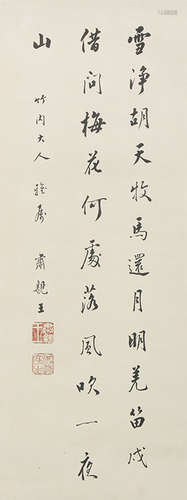 雪淨胡天牧馬還月明羌笛戍
借問梅花何處落風吹一夜
山
竹内大人 雅屬 肅親王